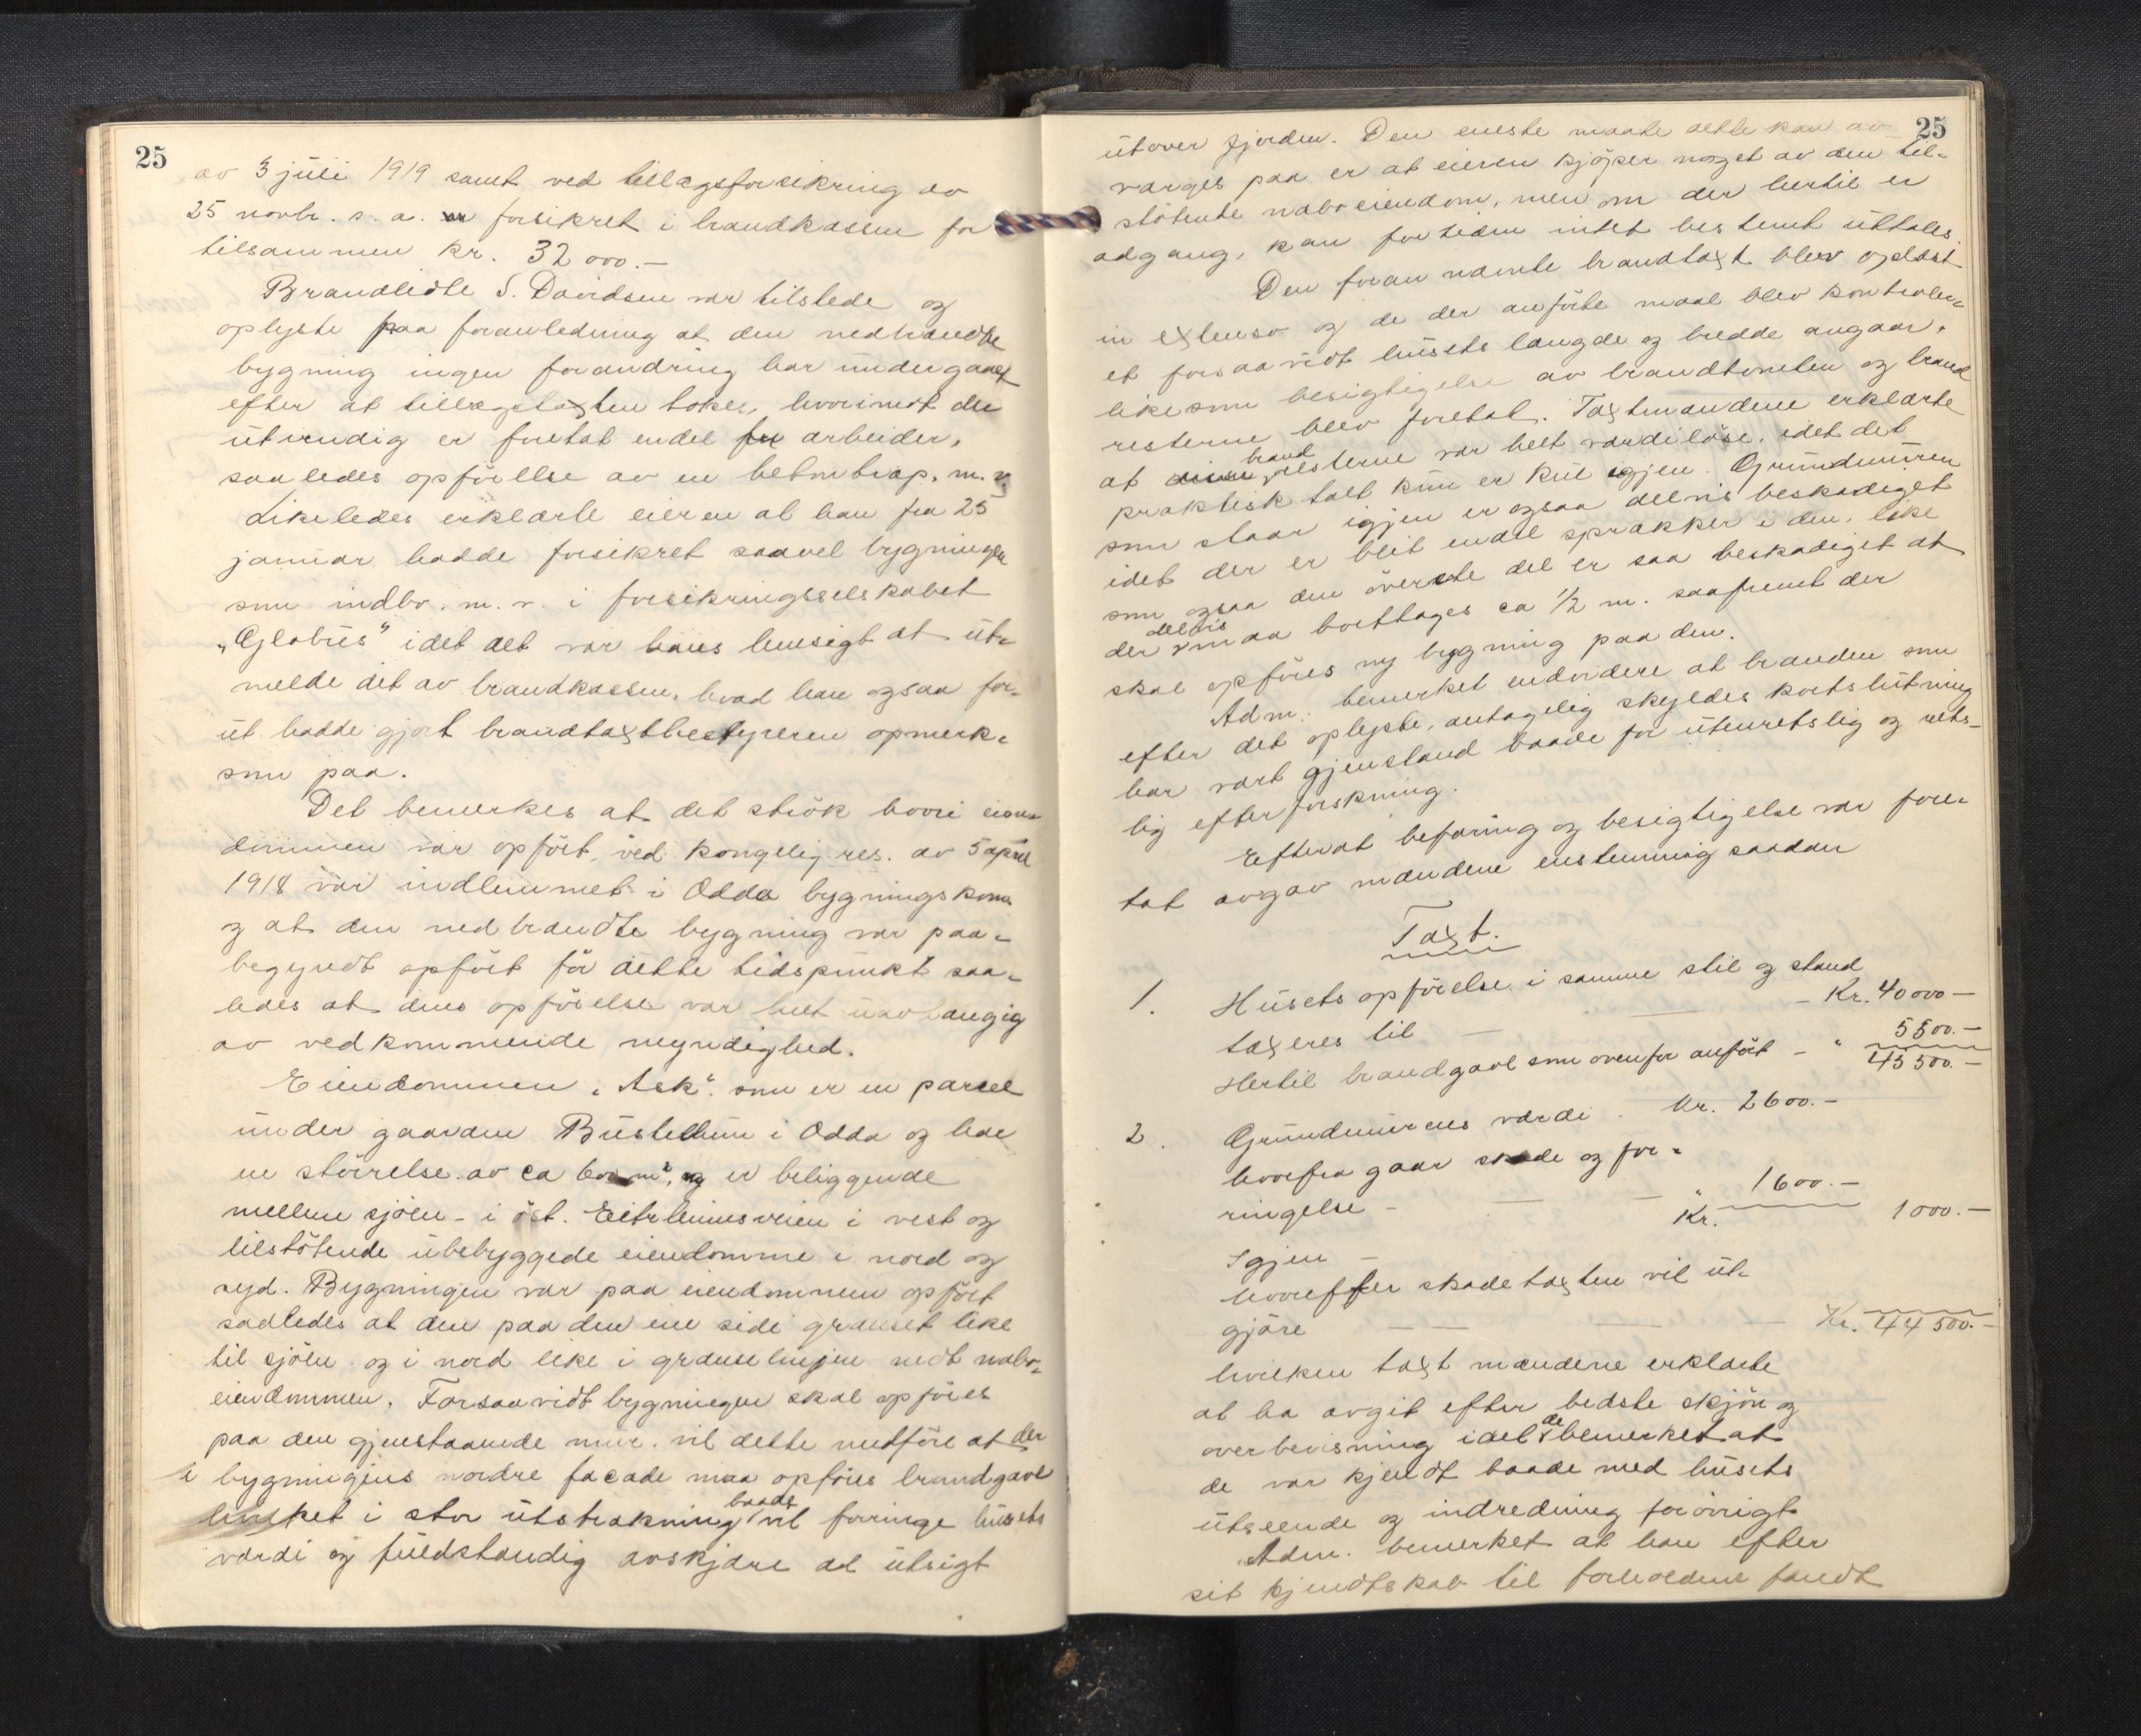 25
av 3 juli 1919 samt ved tillægsforsikring av
25 novbr. s. a. er forsikret i brandkassen for
tilsammen kr. 32 000.-
Brandlidte S. Davidsen var tilstede og
oplyste paa foranledning at den nedbrændte
bygning ingen forandring har undergaaet
efter at tillægstaxten tokes, hvorimot der
utvendig er foretat endel arbeider,
saaledes opførelse av en betontrap. m. v.
Likeledes erklærte eieren at han fra 25
januar hadde forsikret saavel bygningen
som indbo. m. v. i forsikringsselskabet
„Globus" idet det var hans hensigt at ut-
melde det av brandkassen, hvad han ogsaa for-
ut hadde gjort brandtaxtbestyreren opmerk-
som paa.
Det bemerkes at det strök hvori eien-
dommen var opfört, ved kongelig res. av 5 april
1918 var indlemmet i Odda bygningskom.
og at den nedbrændte bygning var paa-
begyndt opfört för dette tidspunkt saa-
ledes at dens opförelse var helt uavhængig
av vedkommende myndighed.
Eiendommen „Ask". som er en parcel
under gaarden Bustetun i Odda og har
en störrelse av ca 600 m², og er beliggende
mellem sjöen - i öst. Eitrheimsveien i vest og
tilstötende ubebyggede eiendomme i nord og
syd. Bygningen var paa eiendommen opfört
saaledes at den paa den ene side grænset like
til sjöen og i nord like i grænselinjen mot nabo-
eiendommen. Forsaavidt bygningen skal opföres
paa den gjenstaaende mur. vil dette medföre at der
i bygningens nordre facade maa opföres brandgavl
hvilket i stor utstrækning baade vil forringe husets
værdi og fuldstændig avskjære al utsigt
25
utover fjorden. Den eneste maate dette kan av
værges paa er at eieren kjöper noget av den til-
stötente naboeiendom, men om der hertil er
adgang, kan for tiden intet bestemt uttales.
Den foran nævnte brandtaxt blev oplæst
in extenso og de der anförte maal blev kontroler-
et forsaavidt husets længde og bredde angaar,
likesom besigtigelse av brandtomten og brand
resterne blev foretat. Taxtmændene erklærte
at brandresterne var helt værdilöse, idet det
praktisk talt kun er kul igjen. Grundmuren
som staar igjen er ogsaa delvis beskadiget
idet der er blit endel sprækker i den, like
som ogsaa den överste del er saa beskadiget at
der delvis maa borttages ca ½ m. saafremt der
skal opföres ny bygning paa den.
Adm. bemerket endvidere at branden som
efter det oplyste, antagelig skyldes kortslutning
har vært gjenstand baade for utenretslig og rets-
lig efterforskning.
Efterat befaring og besigtigelse var fore-
tat avgav mændene enstemmig saadan
Taxt.
1. Husets opförelse i samme stil og stand
taxeres til - Kr. 40 000 -
Hertil brandgavl som ovenfor anfört - " 5500.-
45 500.-
2. Grundmurens værdi . Kr. 2600.-
hvorfra gaar skade og for-
ringelse - " 1600.-
Igjen - Kr. 1000.-
hvorefter skadetaxten vil ut-
gjöre - Kr. 44 500.-
hvilken taxt mændene erklærte
at ha avgit efter bedste skjön og
overbevisning idet de bemerket at
de var kjendt baade med husets
utseende og indredning forövrigt.
Adm. bemerket at han efter
sit kjendtskab til forholdene fandt